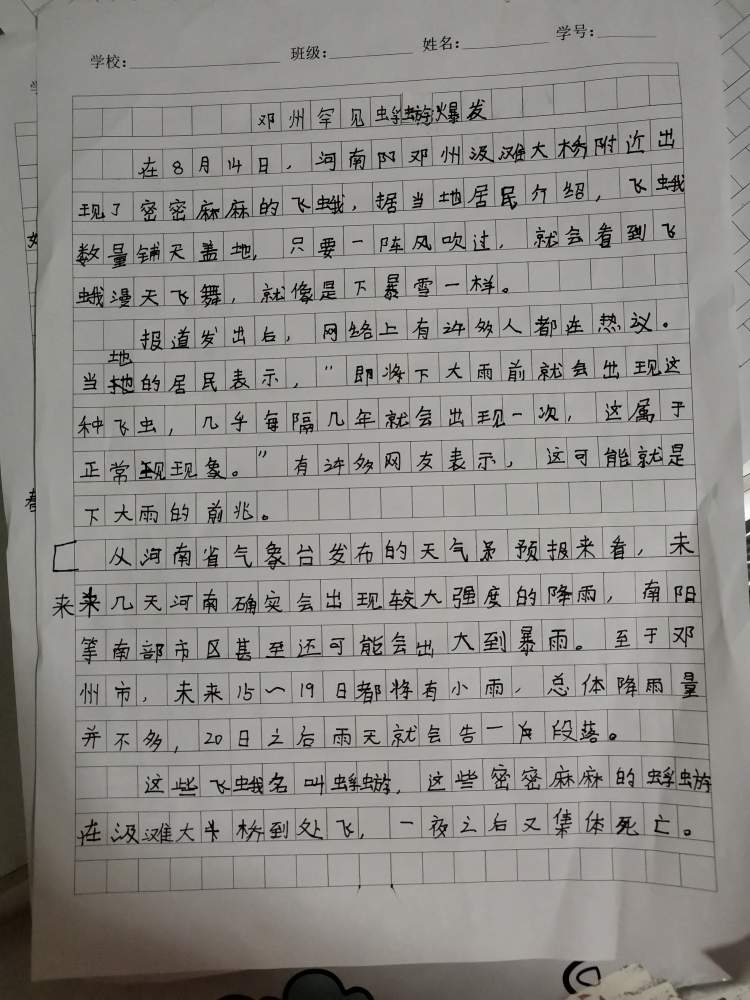 学校： 班级： 姓名： 学号：
邓州罕见蜉蝣爆发
在8月14日，河南阳邓州汲滩大桥附近出
现了密密麻麻的飞蛾，据当地居民介绍，飞蛾
数量铺天盖地，只要一阵风吹过，就会看到飞
蛾漫天飞舞，就像是下暴雪一样。
报道发出后，网络上有许多人都在热议。
地
当地的居民表示，"即将下大雨前就会出现这
种飞虫，几乎每隔几年就会出现一次，这属于
正常现现象。"有许多网友表示，这可能就是
下大雨的前兆。
从河南省气象台发布的天气预报来看，未
来来几天河南确实会出现较大强度的降雨，南阳
等南部市区甚至还可能会出大到暴雨。至于邓
州市，未来15～19日都将有小雨，总体降雨量
并不多，20日之后雨天就会告一段落。
这些飞蛾名叫蜉蝣，这些密密麻麻的蜉蝣
在汲滩大桥到处飞，一夜之后又集体死亡。